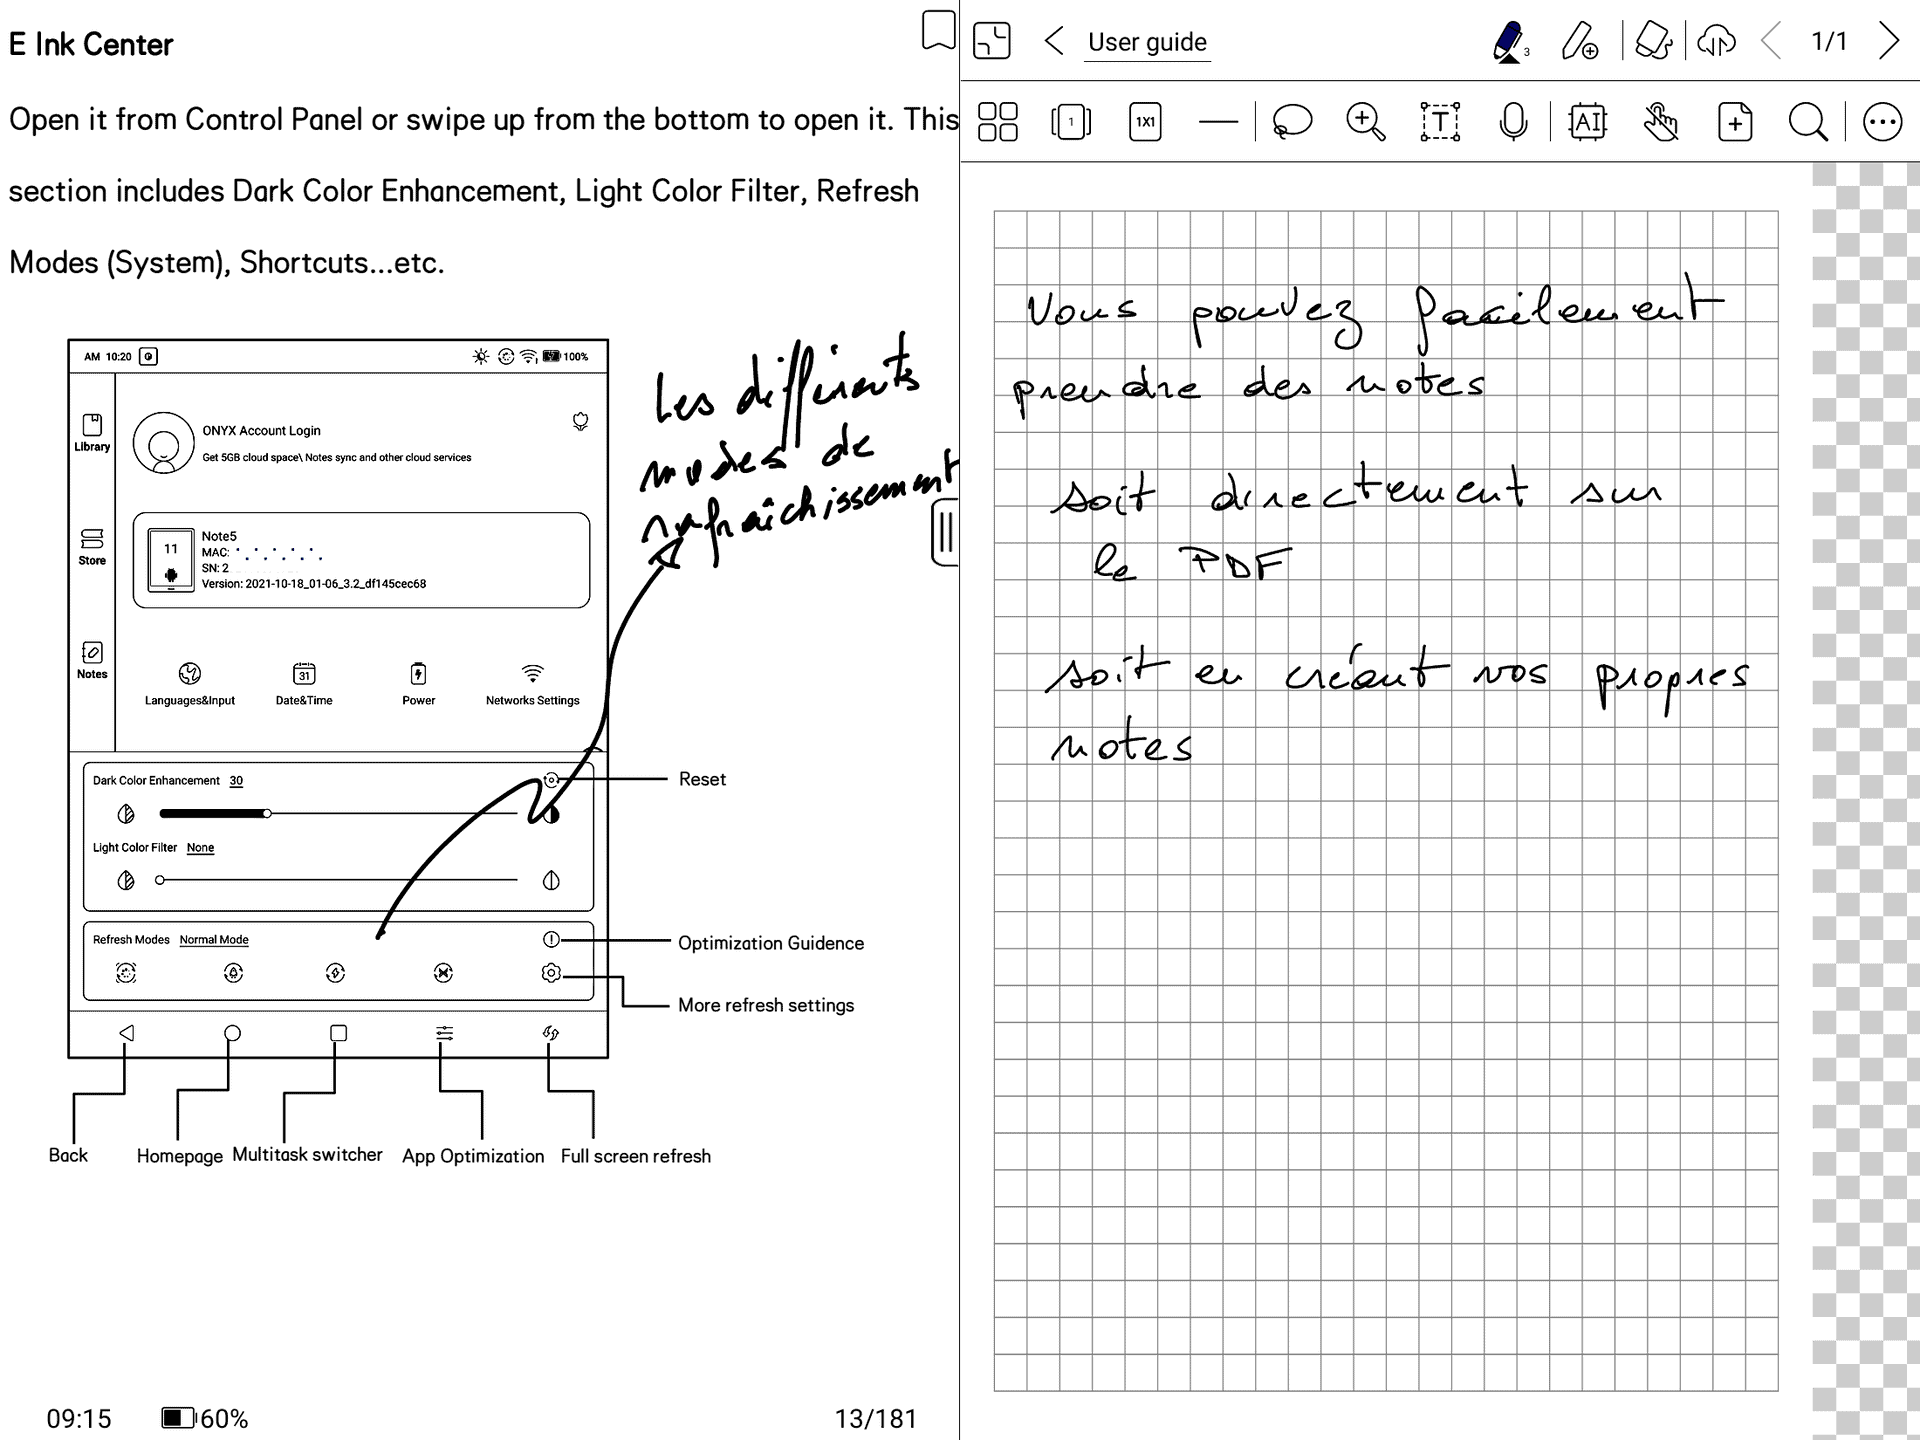 E Ink Center
Open it from Control Panel or swipe up from the bottom to open it. This
section includes Dark Color Enhancement, Light Color Filter, Refresh
Modes (System), Shortcuts...etc.
AM 10:20
100%
Library
Store
Notes
ONYX Account Login
Get 5GB cloud space\ Notes sync and other cloud services
11
Note5
MAC:
SN: 2
Version: 2021-10-18_01-06_3.2_df145cec68
31
Languages&Input
Date&Time
Power
Networks Settings
Dark Color Enhancement 30
Light Color Filter None
Refresh Modes Normal Mode
Reset
Optimization Guidence
More refresh settings
Back
Homepage
Multitask switcher
App Optimization
Full screen refresh
Les différents
modes de
rafraîchissement
09:15
60%
13/181
User guide
3
1/1
1
1X1
T
AI
Vous pouvez facilement
prendre des notes
soit directement sur
le PDF
soit en créant vos propres
notes